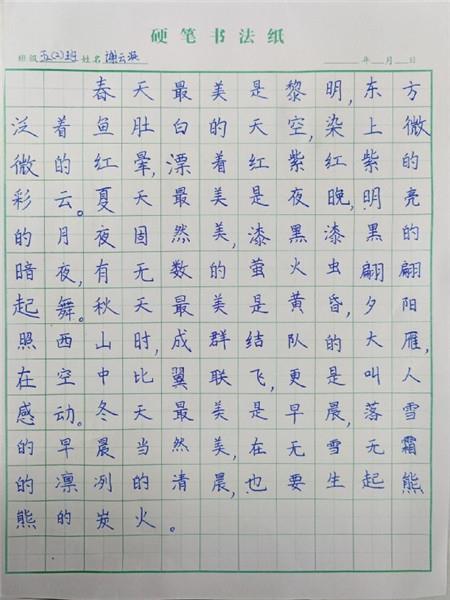 硬笔书法纸
班级 五(2)班 姓名 谢云 年 月 日
春天最美是黎明,东方
泛着鱼肚白的天空,染上微
微的红晕,漂着红紫红紫的
彩云。夏天最美是夜晚,明亮
的月夜固然美,漆黑漆黑的
暗夜,有无数的萤火虫翩翩
起舞。秋天最美是黄昏,夕阳
照西山时,成群结队的大雁,
在空中比翼联飞,更是叫人
感动。冬天最美是早晨,落雪
的早晨当然美,在无雪无霜
的凛冽的清晨,也要生起熊
熊的炭火。